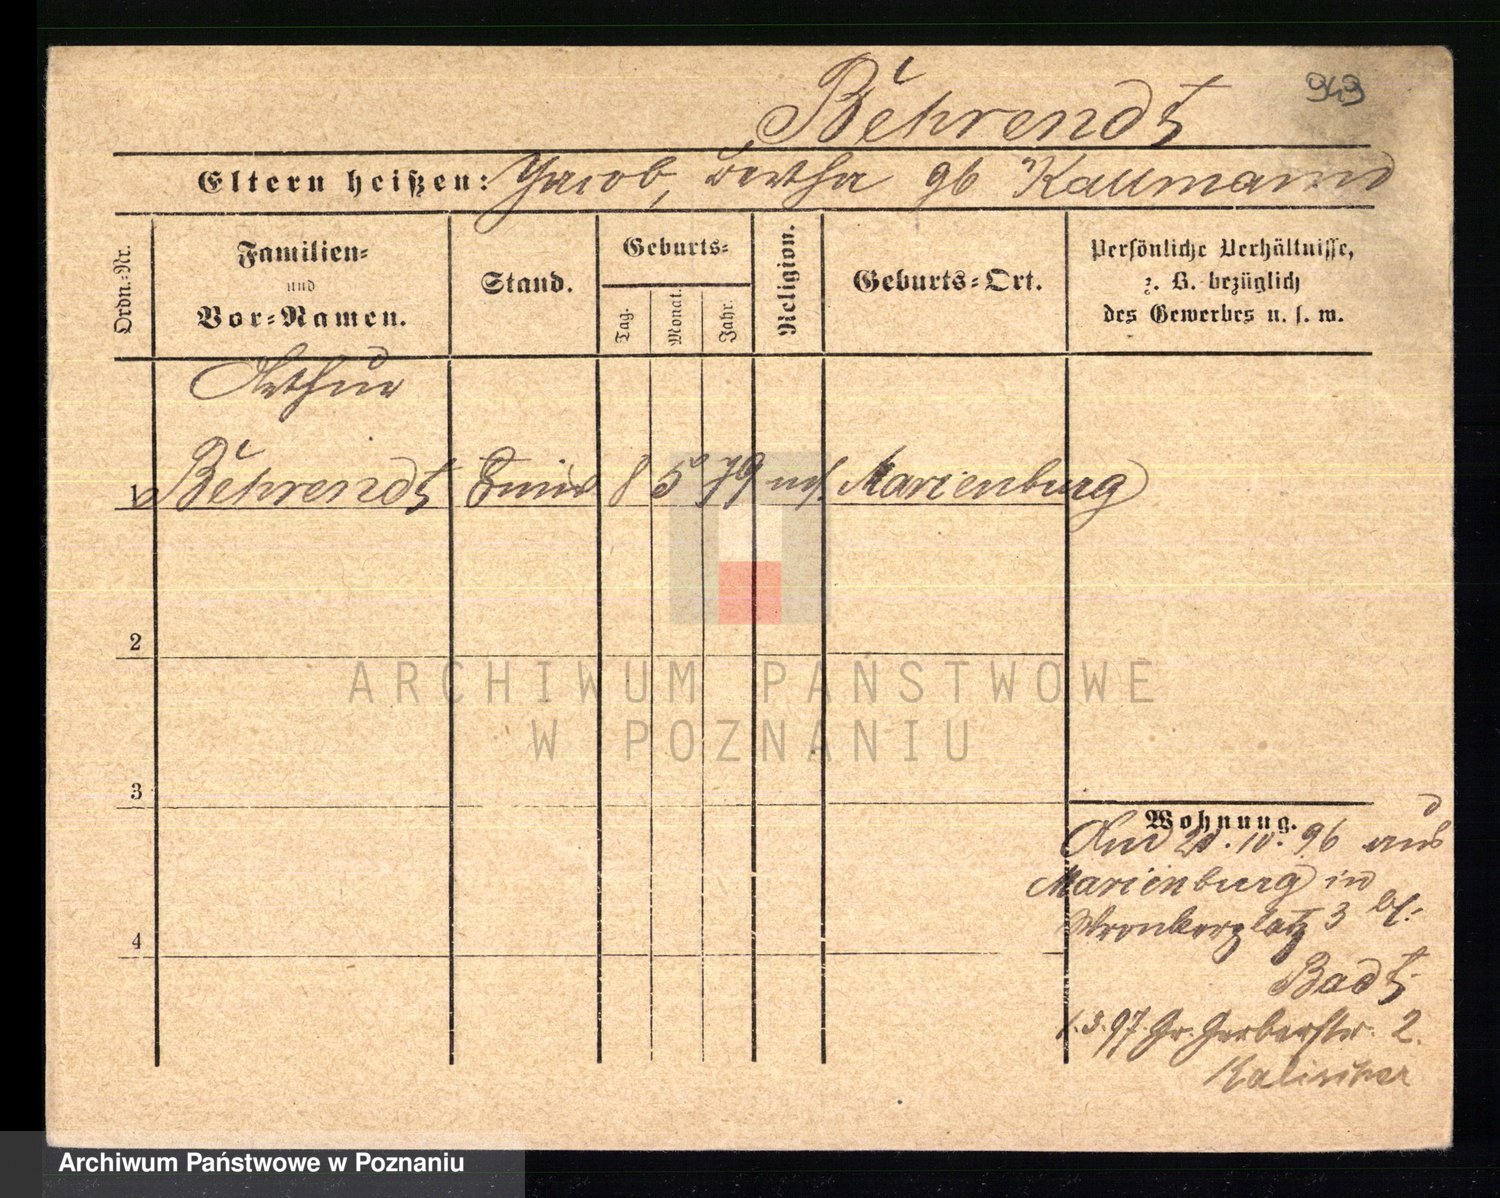 943
Behrendt
Eltern heißen: Jacob, Bertha gb Kallmann
Ordn.-Nr.
Familien-
und
Vor-Namen.
Stand.
Geburts-
Tag.
Monat.
Jahr.
Religion.
Geburts-Ort.
Persönliche Verhältnisse,
z. B. bezüglich
des Gewerbes u. s. w.
Arthur
1 Behrendt 8 5 79 Marienburg
2
ARCHIWUM PAŃSTWOWE
W POZNANIU
3
Wohnung.
10. 96 aus
Marienburg in
Wronkerplatz 3 bei
Badt
4
1.3.97. Gr. Gerberstr. 2.
Kalischer
Archiwum Państwowe w Poznaniu